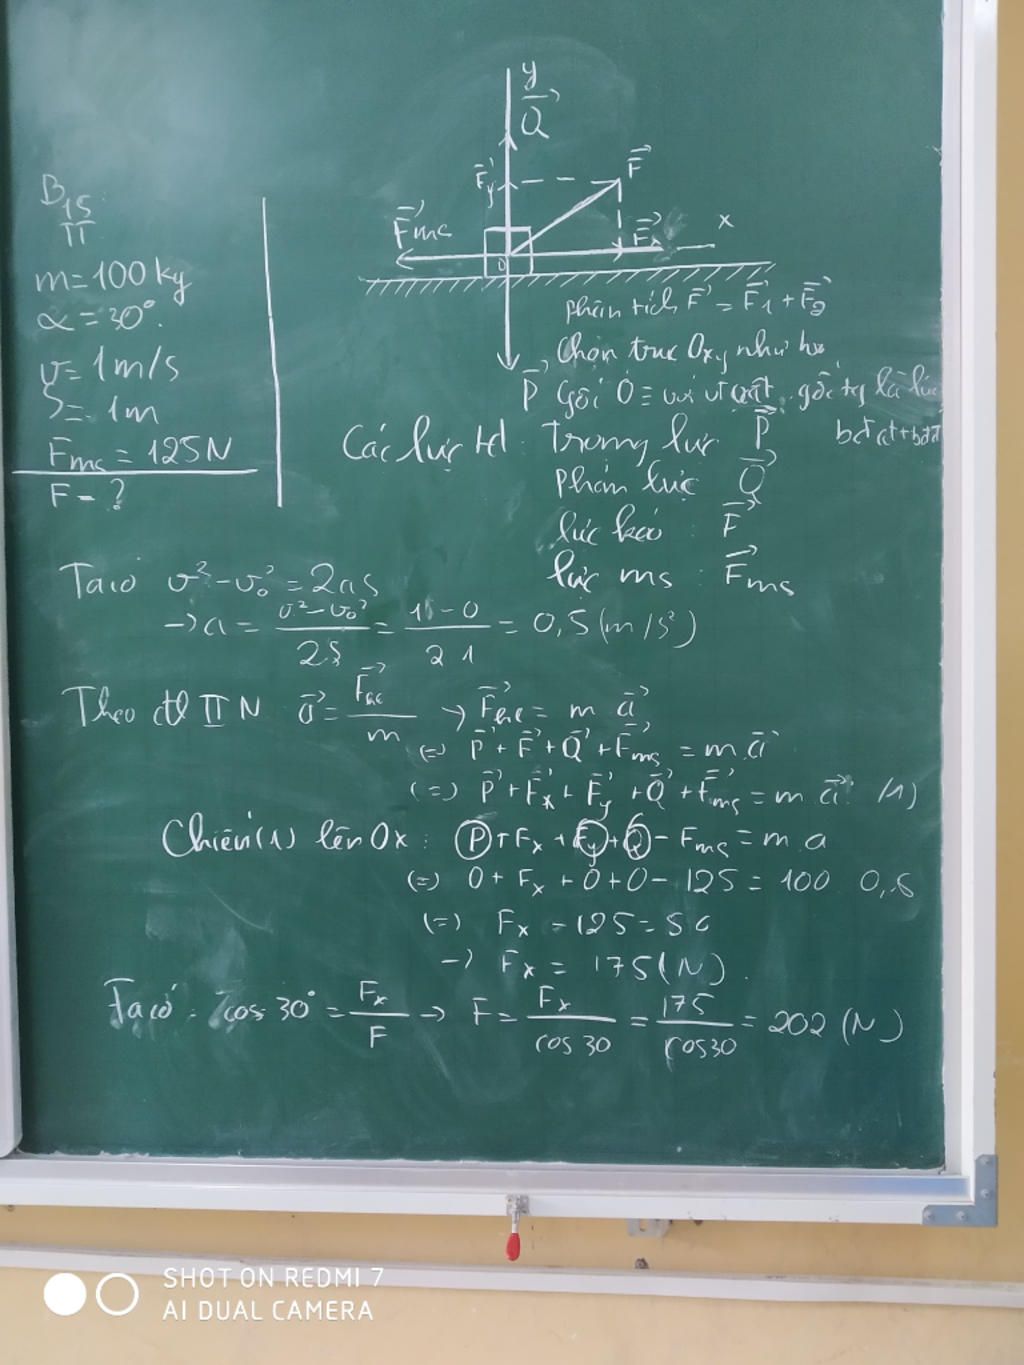 y
Q⃗
F⃗y
F⃗
F⃗ms
Fx
x
O
P⃗
B15
II
m = 100 kg
α = 30°.
v = 1 m/s
S = 1m
Fms = 125N
F = ?
phân tích F⃗ = F⃗1 + F⃗2
Chọn trục Oxy như hv
Gốc O ≡ với vị vật, gốc tg là lúc
bđ
Các lực td: Trọng lực P⃗
phản lực Q⃗
lực kéo : F⃗
lực ms : F⃗ms
Ta có v² - v₀² = 2as
→ a = (v² - v₀²)/2S = (1² - 0)/2.1 = 0,5 (m/s²)
Theo đl II N a⃗ = F⃗hl/m → F⃗hl = m a⃗
(=) P⃗ + F⃗ + Q⃗ + F⃗ms = m.a⃗
(=) P⃗ + F⃗x + F⃗y + Q⃗ + F⃗ms = m.a⃗ (1)
Chiếu (1) lên Ox : P + Fx + Fy + Q - Fms = m.a
(=) 0 + Fx + 0 + 0 - 125 = 100 . 0,5
(=) Fx - 125 = 50
→ Fx = 175 (N).
Ta có : cos 30° = Fx/F → F = Fx/cos 30 = 175/cos30 = 202 (N)
SHOT ON REDMI 7
AI DUAL CAMERA